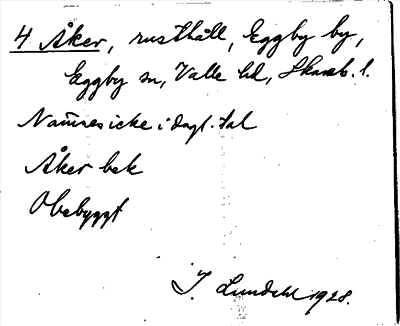 4 Åker, rusthåll, Eggby by,
Eggby sn, Valle hd, Skarab. l.
Namnes icke i dagl. tal
Åker bek
Obebyggt
I. Lundahl 1928.